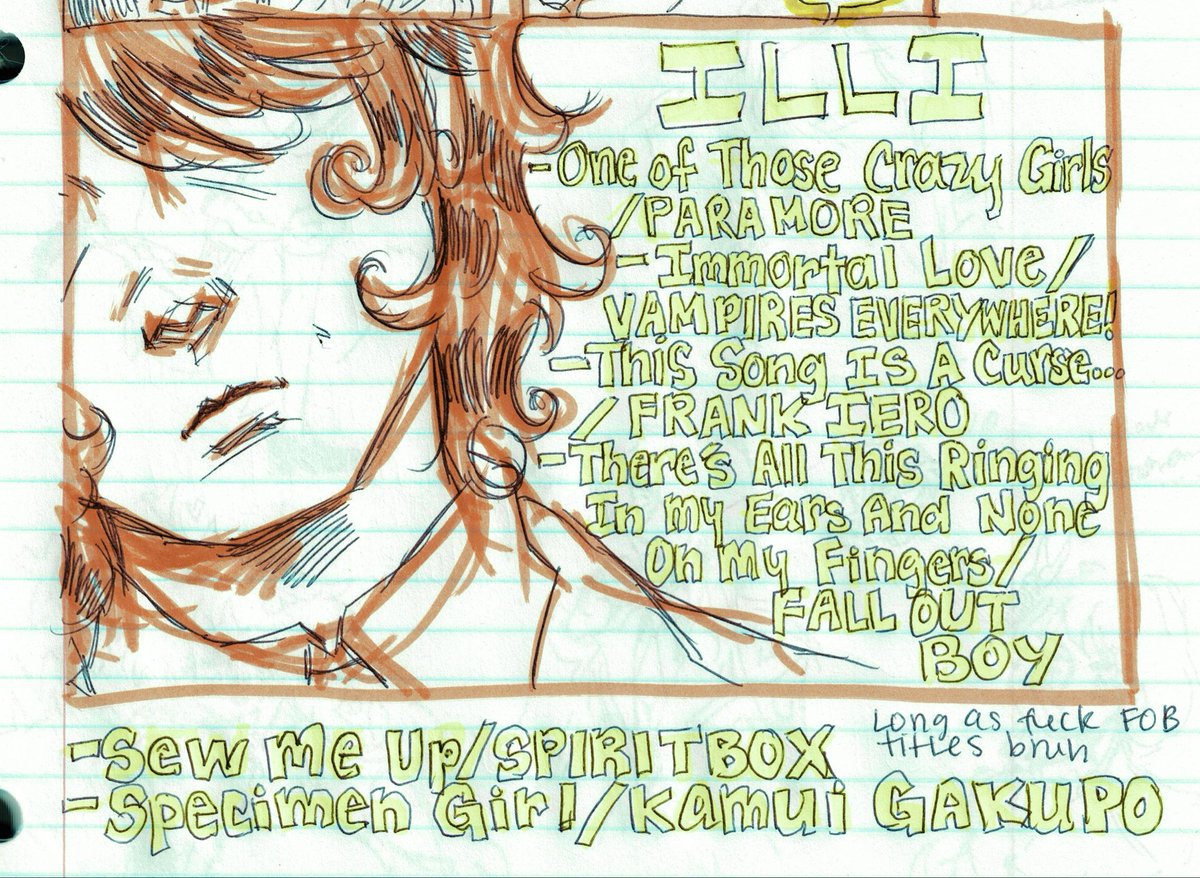 ILLI
-One of Those Crazy Girls
/PARAMORE
-Immortal Love/
VAMPIRES EVERYWHERE!
-This Song IS A Curse...
/FRANK IERO
-There's All This Ringing
In my Ears And None
On My Fingers/
FALL OUT
BOY
Long as fuck FOB
titles bruh
-Sew me Up/SPIRITBOX
-Specimen Girl/Kamui GAKUPO